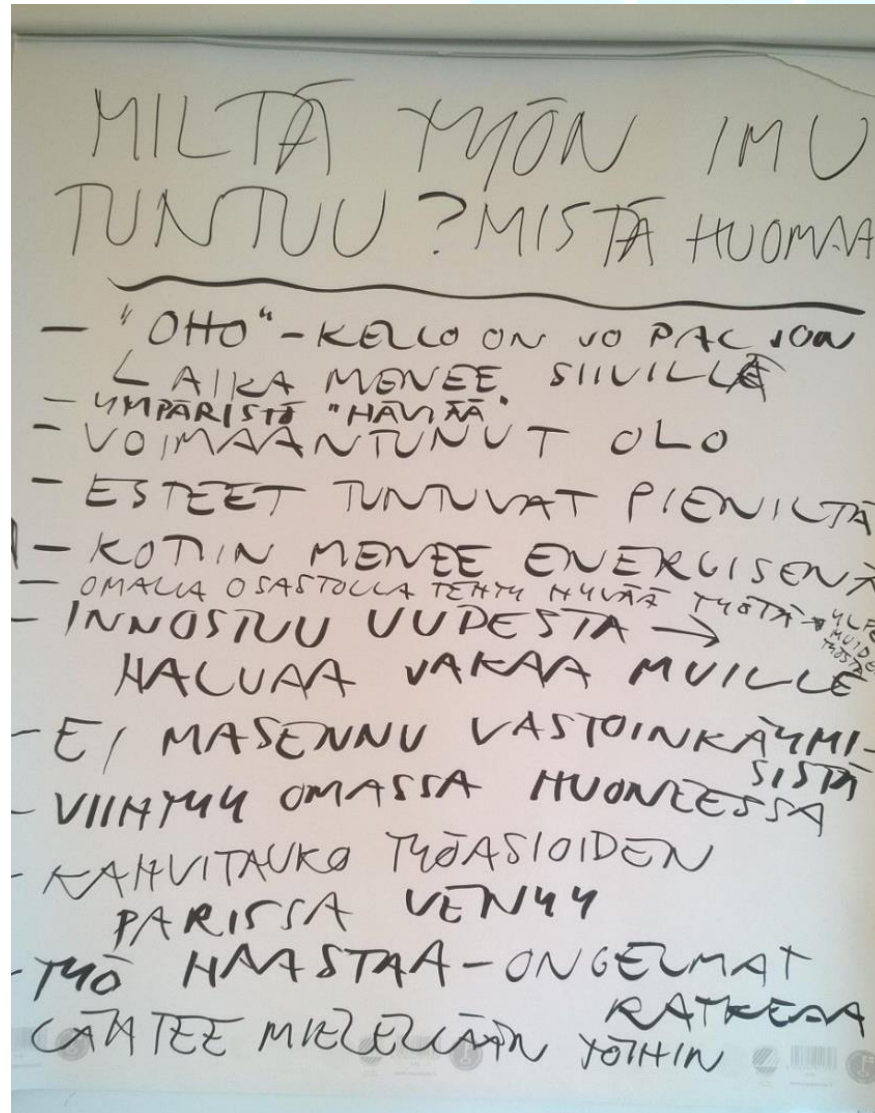 MILTÄ TYÖN IMU
TUNTUU? MISTÄ HUOMAA
– "OHO" – KELLO ON JO PALJON
AIKA MENEE SIIVILLÄ
– YMPÄRISTÖ "HÄVIÄÄ"
– VOIMAANTUNUT OLO
– ESTEET TUNTUVAT PIENILTÄ
– KOTIIN MENEE ENERGISENÄ
– OMALLA OSASTOLLA TEHTY HYVÄÄ TYÖTÄ →
MUIDEN
TYÖSTÄ
– INNOSTUU UUDESTA →
HALUAA JAKAA MUILLE
– EI MASENNU VASTOINKÄYMI-
SISTÄ
– VIIHTYY OMASSA HUONEESSA
– KAHVITAUKO TYÖASIOIDEN
PARISSA VENYY
– TYÖ HAASTAA – ONGELMAT
RATKEAA
LÄHTEE MIELELLÄÄN TÖIHIN